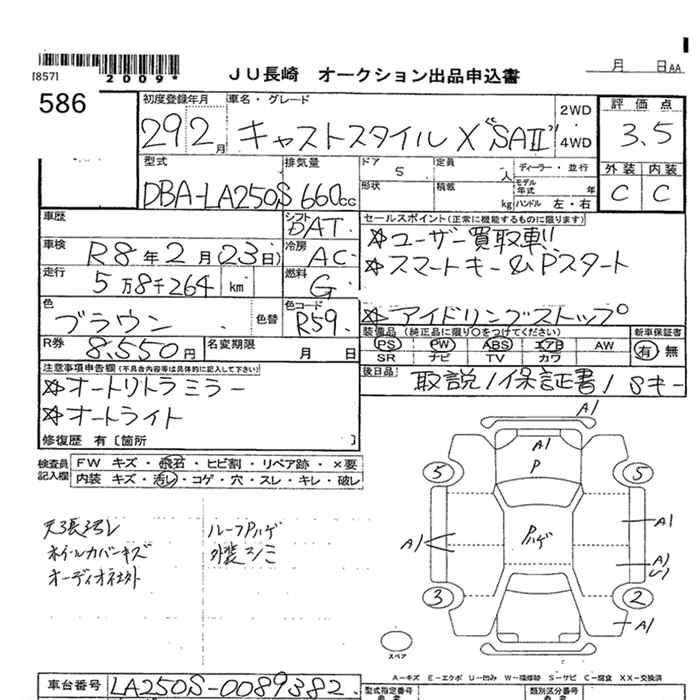 [857]
2009*
JU長崎 オークション出品申込書
月 日AA
586
初度登録年月
29 2月
車名・グレード
キャストスタイル X "SAⅡ"
2WD
4WD
評価点
3.5
外装 内装
C C
型式
DBA-LA250S
排気量
660cc
ドア
5
定員
人
ディーラー・並行
形状
積載
kg
モデル年式 年
ハンドル 左・右
車歴
シフト
DAT
セールスポイント(正常に機能するものに限ります)
☆ユーザー買取車!!
☆スマートキー&Pスタート
☆アイドリングストップ。
車検
R8年2月(23日)
冷房
AC
走行
5万8千264 km
燃料
G
色
ブラウン
色替
色コード
R59.
R券
8,550円
名変期限
月 日
装備品 (純正品に限り○をつけてください)
PS PW ABS エアB AW
SR ナビ TV カワ
新車保証書
有・無
後日品
取説/保証書/Sキー
注意事項申告欄(不具合含は具体的に記入して下さい)
☆オートリトラミラー
☆オートライト
修復歴 有〔箇所 〕
検査員記入欄
FW キズ・飛石・ヒビ割・リペア跡・×要
内装 キズ・汚レ・コゲ・穴・スレ・キレ・破レ
天張汚レ
ホイルカバーキズ
オーディオネ社外
ルーフPハゲ
外装シミ
A1
A1
P
5 5
Pハゲ
A1
A1
A1
3 2
A1
スペア
A-キズ E-エクボ U-凹み W-補修跡 S-サビ C-腐食 XX-交換済
車台番号
LA250S-0089382
型式指定番号
類別区分番号